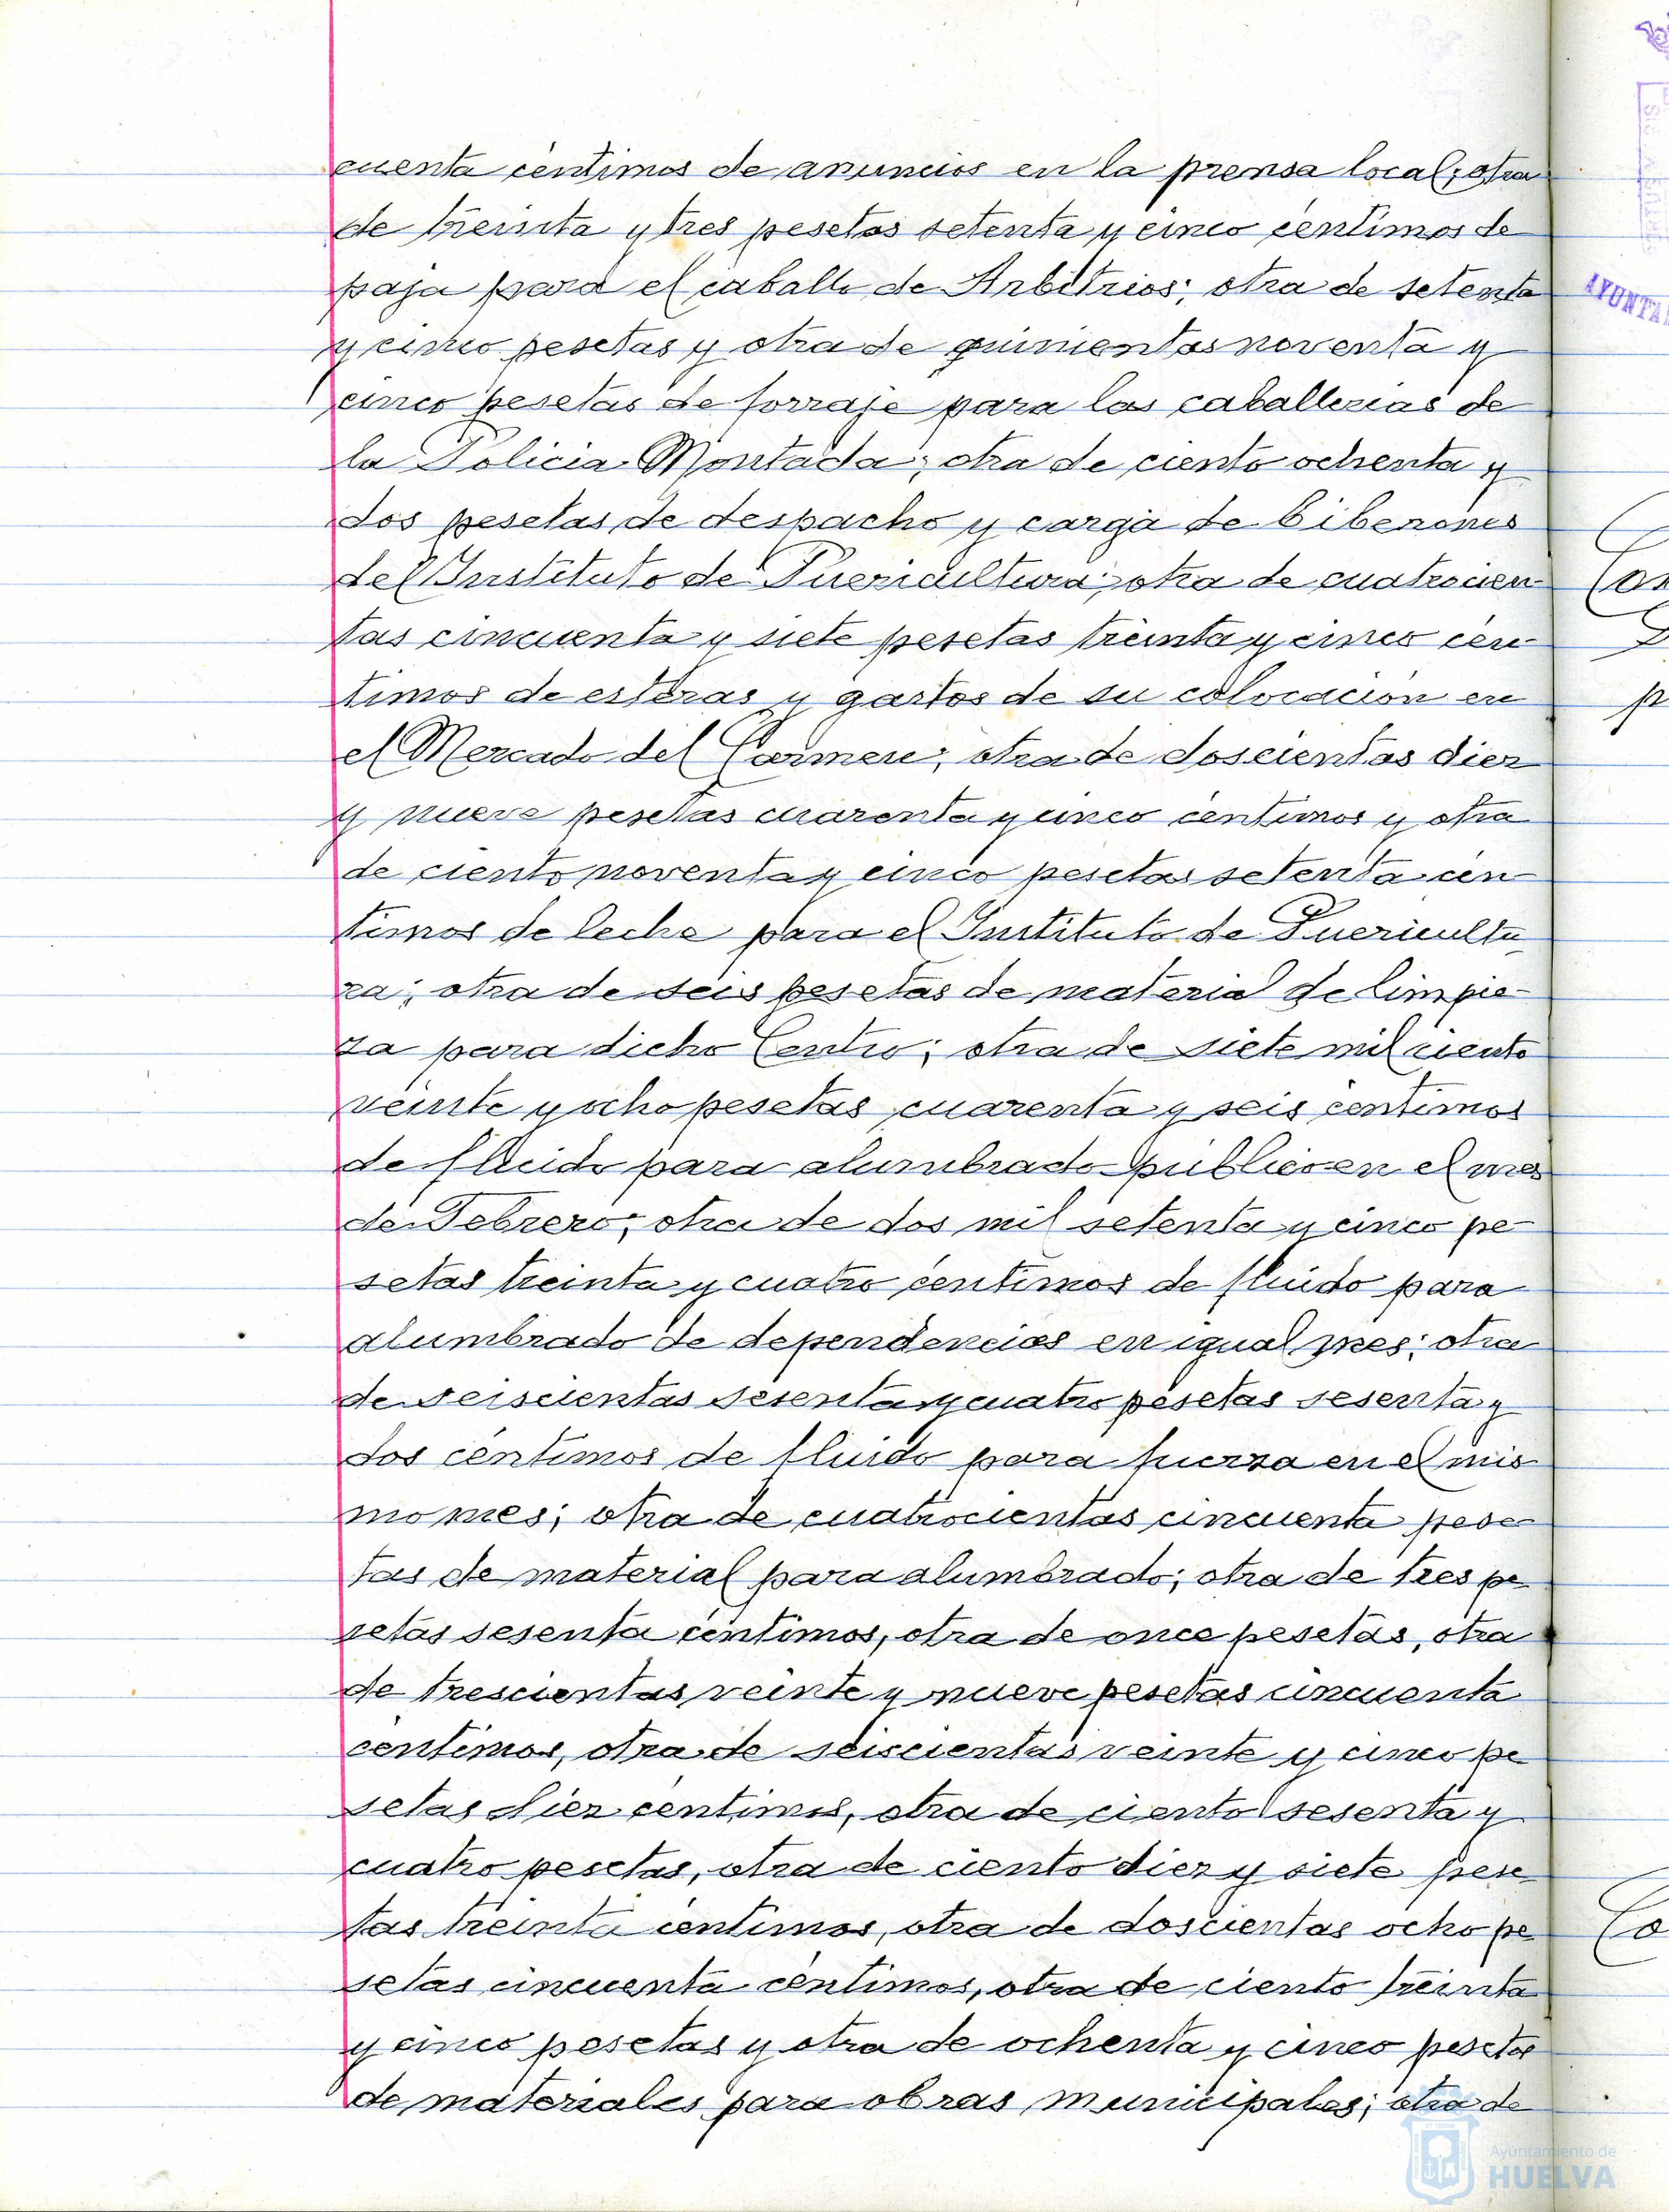 cuenta céntimos de anuncios en la prensa local; otra
de treinta y tres pesetas setenta y cinco céntimos de
paja para el caballo de Arbitrios; otra de setenta
y cinco pesetas y otra de quinientas noventa y
cinco pesetas de forraje para las caballerias de
la Policia Montada; otra de ciento ochenta y
dos pesetas de despacho y carga de biberones
del Instituto de Puericultura; otra de cuatrocien-
tas cincuenta y siete pesetas treinta y cinco cén-
timos de esteras y gastos de su colocación en
el Mercado del Carmen; otra de doscientas diez
y nueve pesetas cuarenta y cinco céntimos y otra
de ciento noventa y cinco pesetas setenta cén
timos de leche para el Instituto de Puericultu-
ra; otra de seis pesetas de material de limpie-
za para dicho Centro; otra de siete mil ciento
veinte y ocho pesetas cuarenta y seis céntimos
de fluido para alumbrado público en el mes
de Febrero; otra de dos mil setenta y cinco pe-
setas treinta y cuatro céntimos de fluido para
alumbrado de dependencias en igual mes; otra
de seiscientas sesenta y cuatro pesetas sesenta y
dos céntimos de fluido para fuerza en el mis-
mo mes; otra de cuatrocientas cincuenta pese-
tas de material para alumbrado; otra de tres pe
setas sesenta céntimos, otra de once pesetas, otra
de trescientas veinte y nueve pesetas cincuenta
céntimos, otra de seiscientas veinte y cinco pe
setas diez céntimos, otra de ciento sesenta y
cuatro pesetas, otra de ciento diez y siete pese
tas treinta céntimos, otra de doscientas ocho pe
setas cincuenta céntimos, otra de ciento treinta
y cinco pesetas y otra de ochenta y cinco pesetas
de materiales para obras municipales; otra de
AYUNTA
Ayuntamiento de
HUELVA